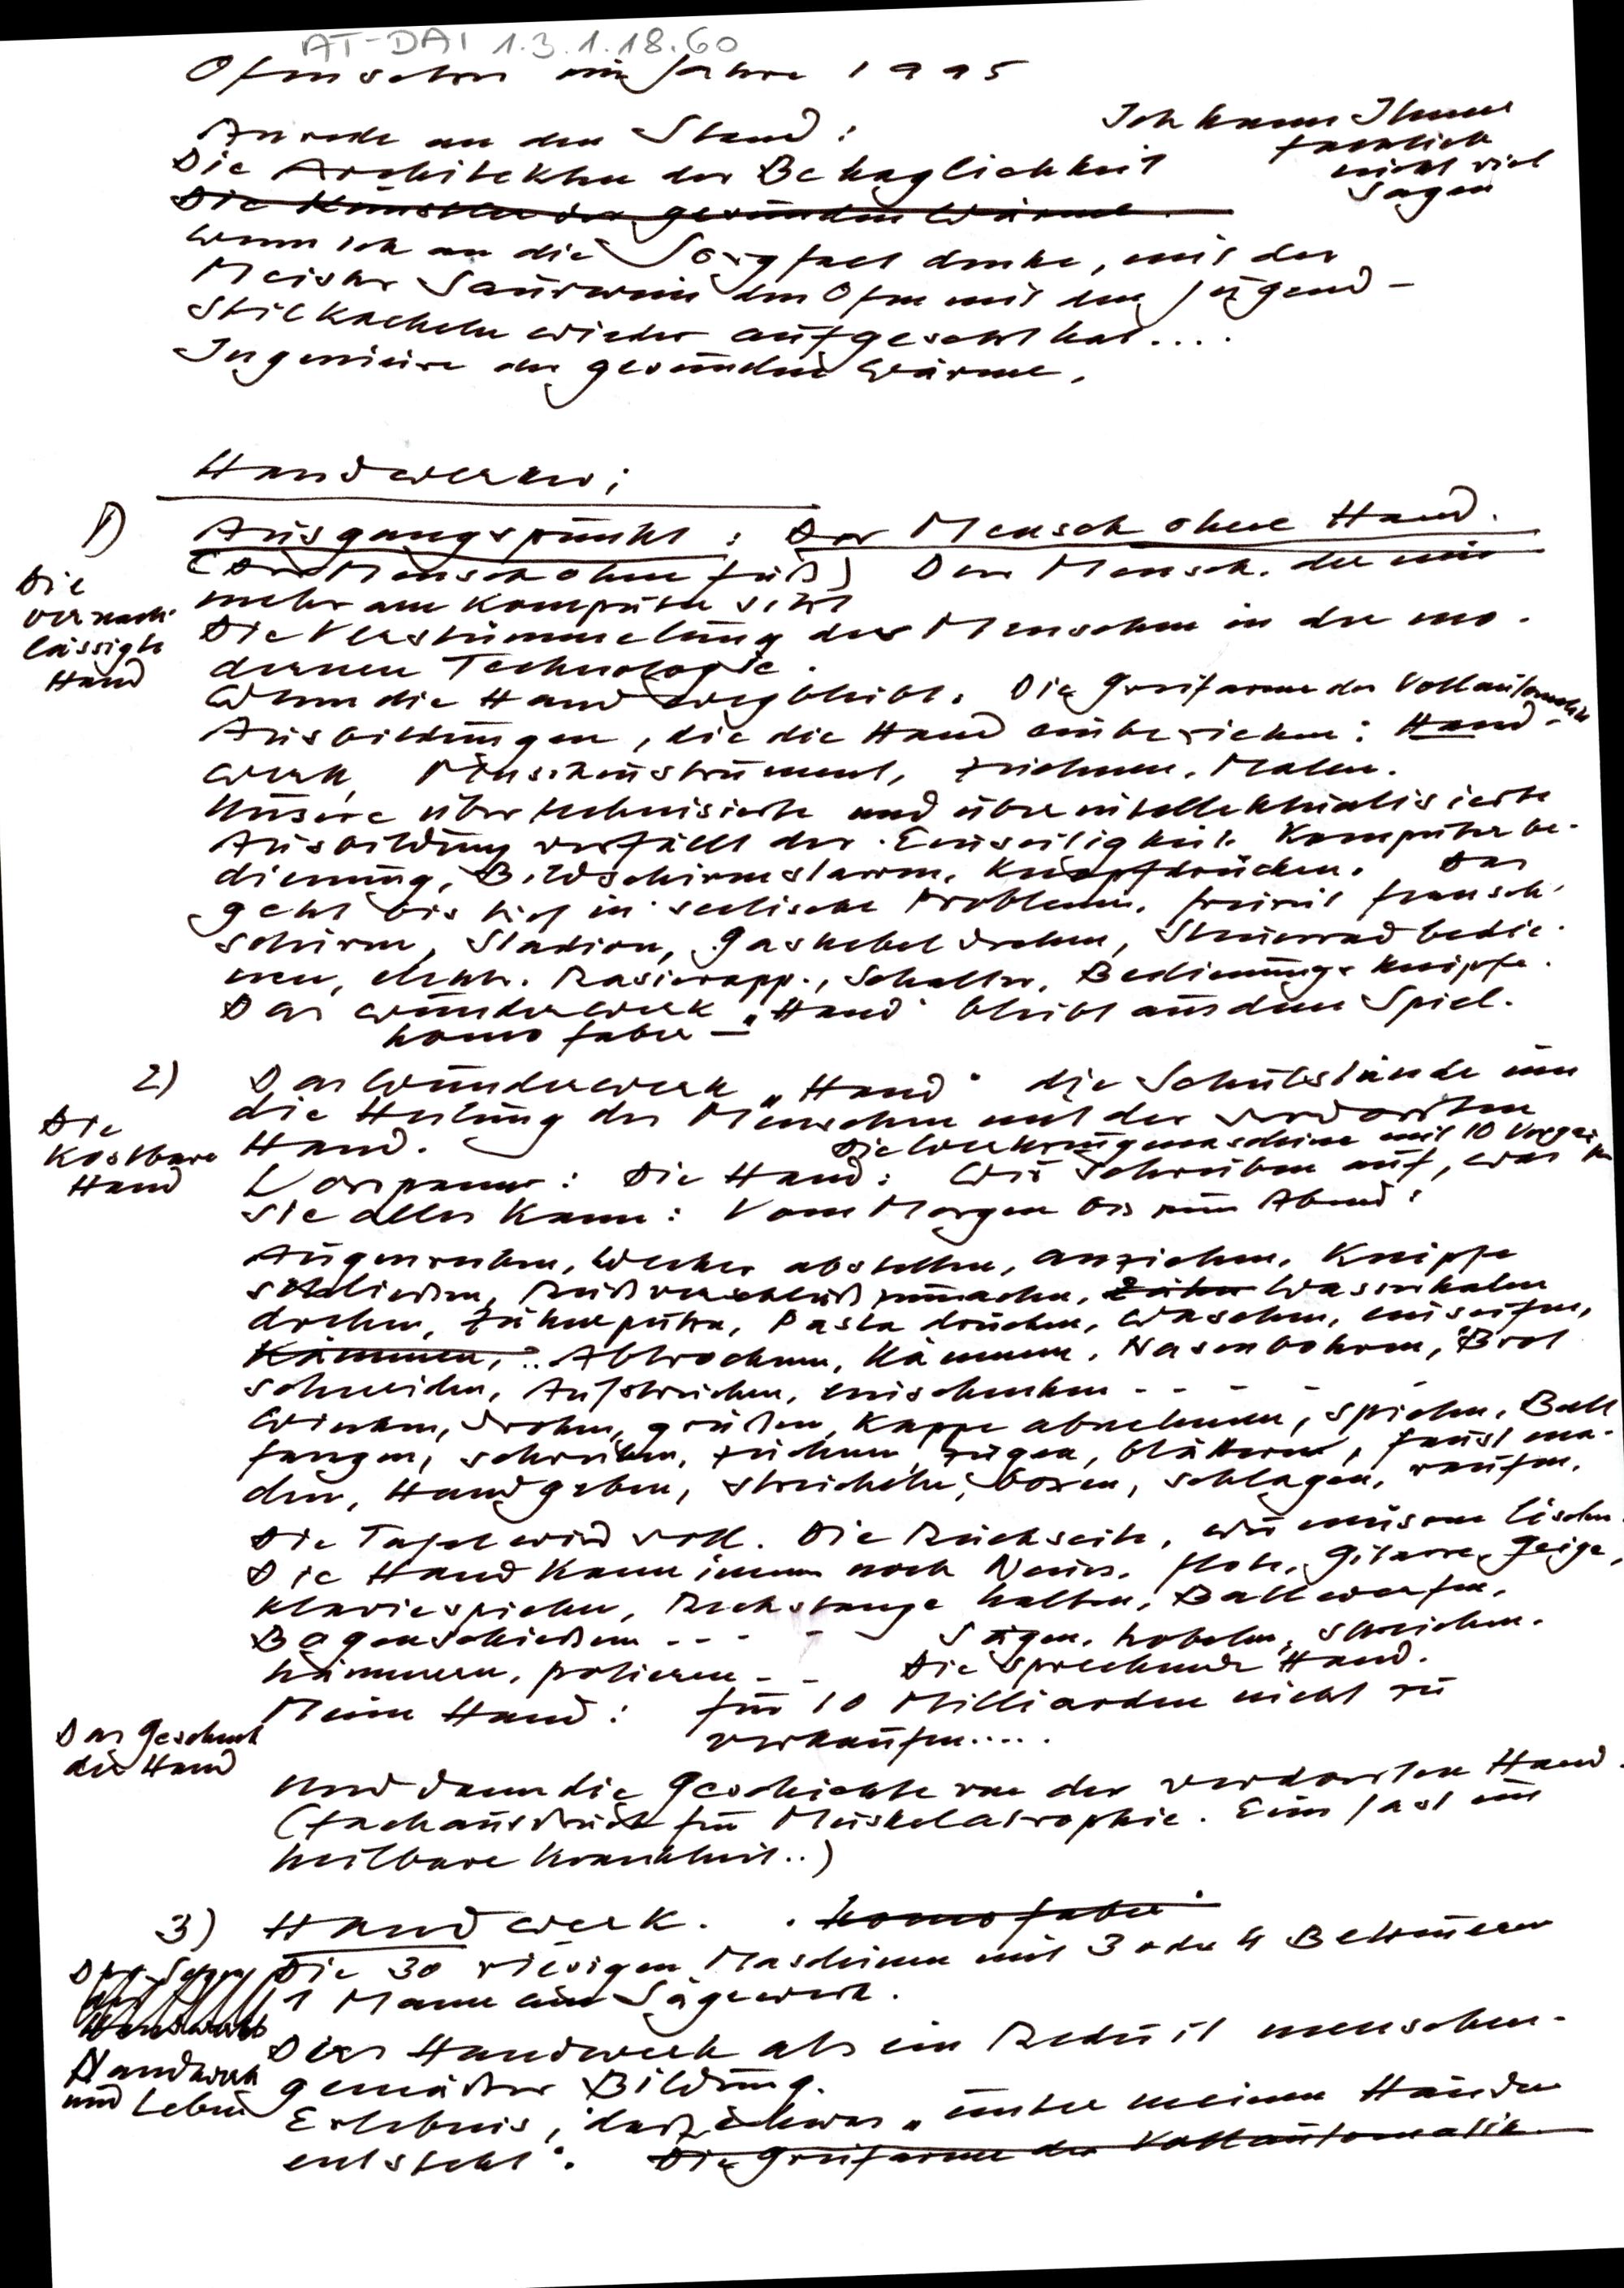 AT-DAI 1.3.1.18.60
Ofensetzer im Jahre 1995
Anrede an den Stand:
Ich kann Ihnen
fachlich
nicht viel
sagen
Die Architekten der Behaglichkeit
Die Künstler der gesunden Wärme.
Wenn ich an die Sorgfalt denke, mit der
Meister Saurwein den Ofen mit den Jugend-
stilkacheln wieder aufgesetzt hat....
Ingenieure der gesunden Wärme.
Handwerker:
1)
Die
vernach-
lässigte
Hand
Ausgangspunkt: Der Mensch ohne Hand.
(Der Mensch ohne Fuß) Der Mensch, der nur
mehr am Komputer sitzt
Die Verstümmelung des Menschen in der mo-
dernen Technologie.
Wenn die Hand wegbleibt. Die Greifarme der Vollautomatik
Ausbildungen, die die Hand einbeziehen: Hand-
werk, Musikinstrument, Zeichnen, Malen.
Unsere übertechnisierte und überintellektualisierte
Ausbildung verfällt der Einseitigkeit. Komputerbe-
dienung, Bildschirmstarren, Knopfdrücken. Das
geht bis tief in seelische Probleme. Freizeit Fernseh-
schirm, Stadion, Gashebel drehen, Steuerrad bedie-
nen, elektr. Rasierapp., Schalter, Bedienungsknöpfe.
Das Wunderwerk "Hand" bleibt aus dem Spiel.
homo faber —
2)
Die
Kostbare
Hand
Das Wunderwerk "Hand" die Schulstunde um
die Heilung des Menschen mit der verdorrten
Hand.
Die Werkzeugmaschine mit 10 Vorgängen
Vorspann: Die Hand: Wir schreiben auf, was
sie alles kann: Vom Morgen bis zum Abend:
Augenreiben, Wecker abstellen, anziehen, Knöpfe
schließen, Reißverschluß zumachen, Zähne Wasserhahn
drehen, Zähneputzen, Pasta drücken, waschen, einseifen,
Kämmen, .. Abtrocknen, kämmen, Nasenbohren, Brot
schneiden, Aufstreichen, einschenken - - - - -
Winken, drohen, grüßen, Kappe abnehmen, spielen, Ball
fangen, schreiben, zeichnen, zeigen, blättern, Faust ma-
chen, Hand geben, streicheln, boxen, schlagen, raufen.
Die Tafel wird voll. Die Rückseite, wir müssen löschen.
Die Hand kann immer noch Neues. Flöte, Gitarre, Geige,
Klavierspielen, Reckstange halten, Ball werfen,
Bogenschießen - - - - Sägen, hobeln, streichen.
hämmern, polieren - - Die sprechende Hand.
Das Geschenk
der Hand
Meine Hand: für 10 Milliarden nicht zu
verkaufen.....
Und dann die Geschichte von der verdorrten Hand.
(Fachausdruck für Muskelatrophie. Eine fast un-
heilbare Krankheit..)
3)
Handwerk. . homo faber
Die 30 riesigen Maschinen mit 3 oder 4 Betreuern
1 Mann ein Sägewerk.
Handwerk
und Leben
Das Handwerk als ein Reduit menschen-
gemäßer Bildung.
Erlebnis, daß etwas "unter meinen Händen
entsteht". Die Greifarme der Vollautomatik